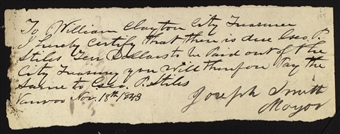 To William Clayton City Treasurer
I hereby Certify that there is due Geo. P.
Stiles Ten Dollars to be Paid out of the
City Treasury you will therefore Pay the
Same to Geo. P. Stiles
Nauvoo Nov. 18th 1843
Joseph Smith
Mayor